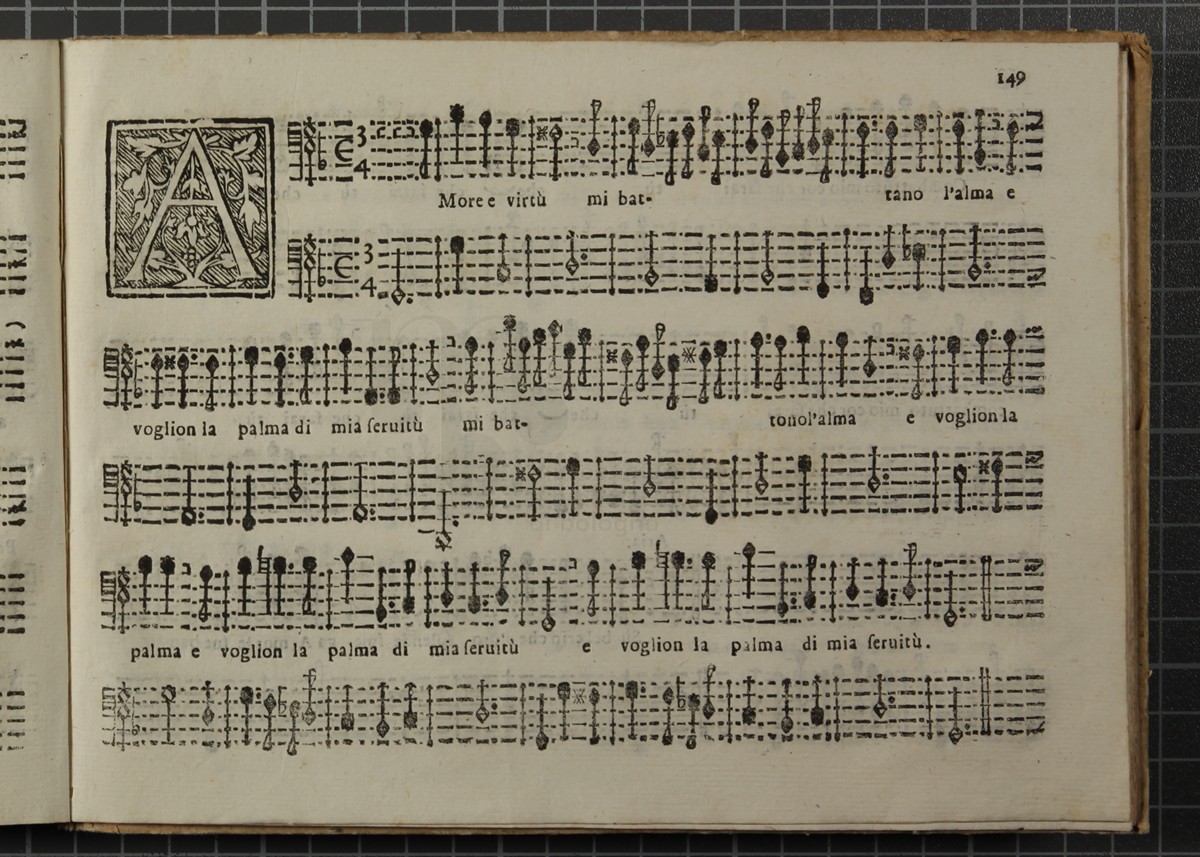 149
A
3
4
More e virtù mi bat- tano l'alma e
3
4
voglion la palma di mia ſeruitù mi bat- tono l'alma e voglion la
palma e voglion la palma di mia ſeruitù e voglion la palma di mia ſeruitù.